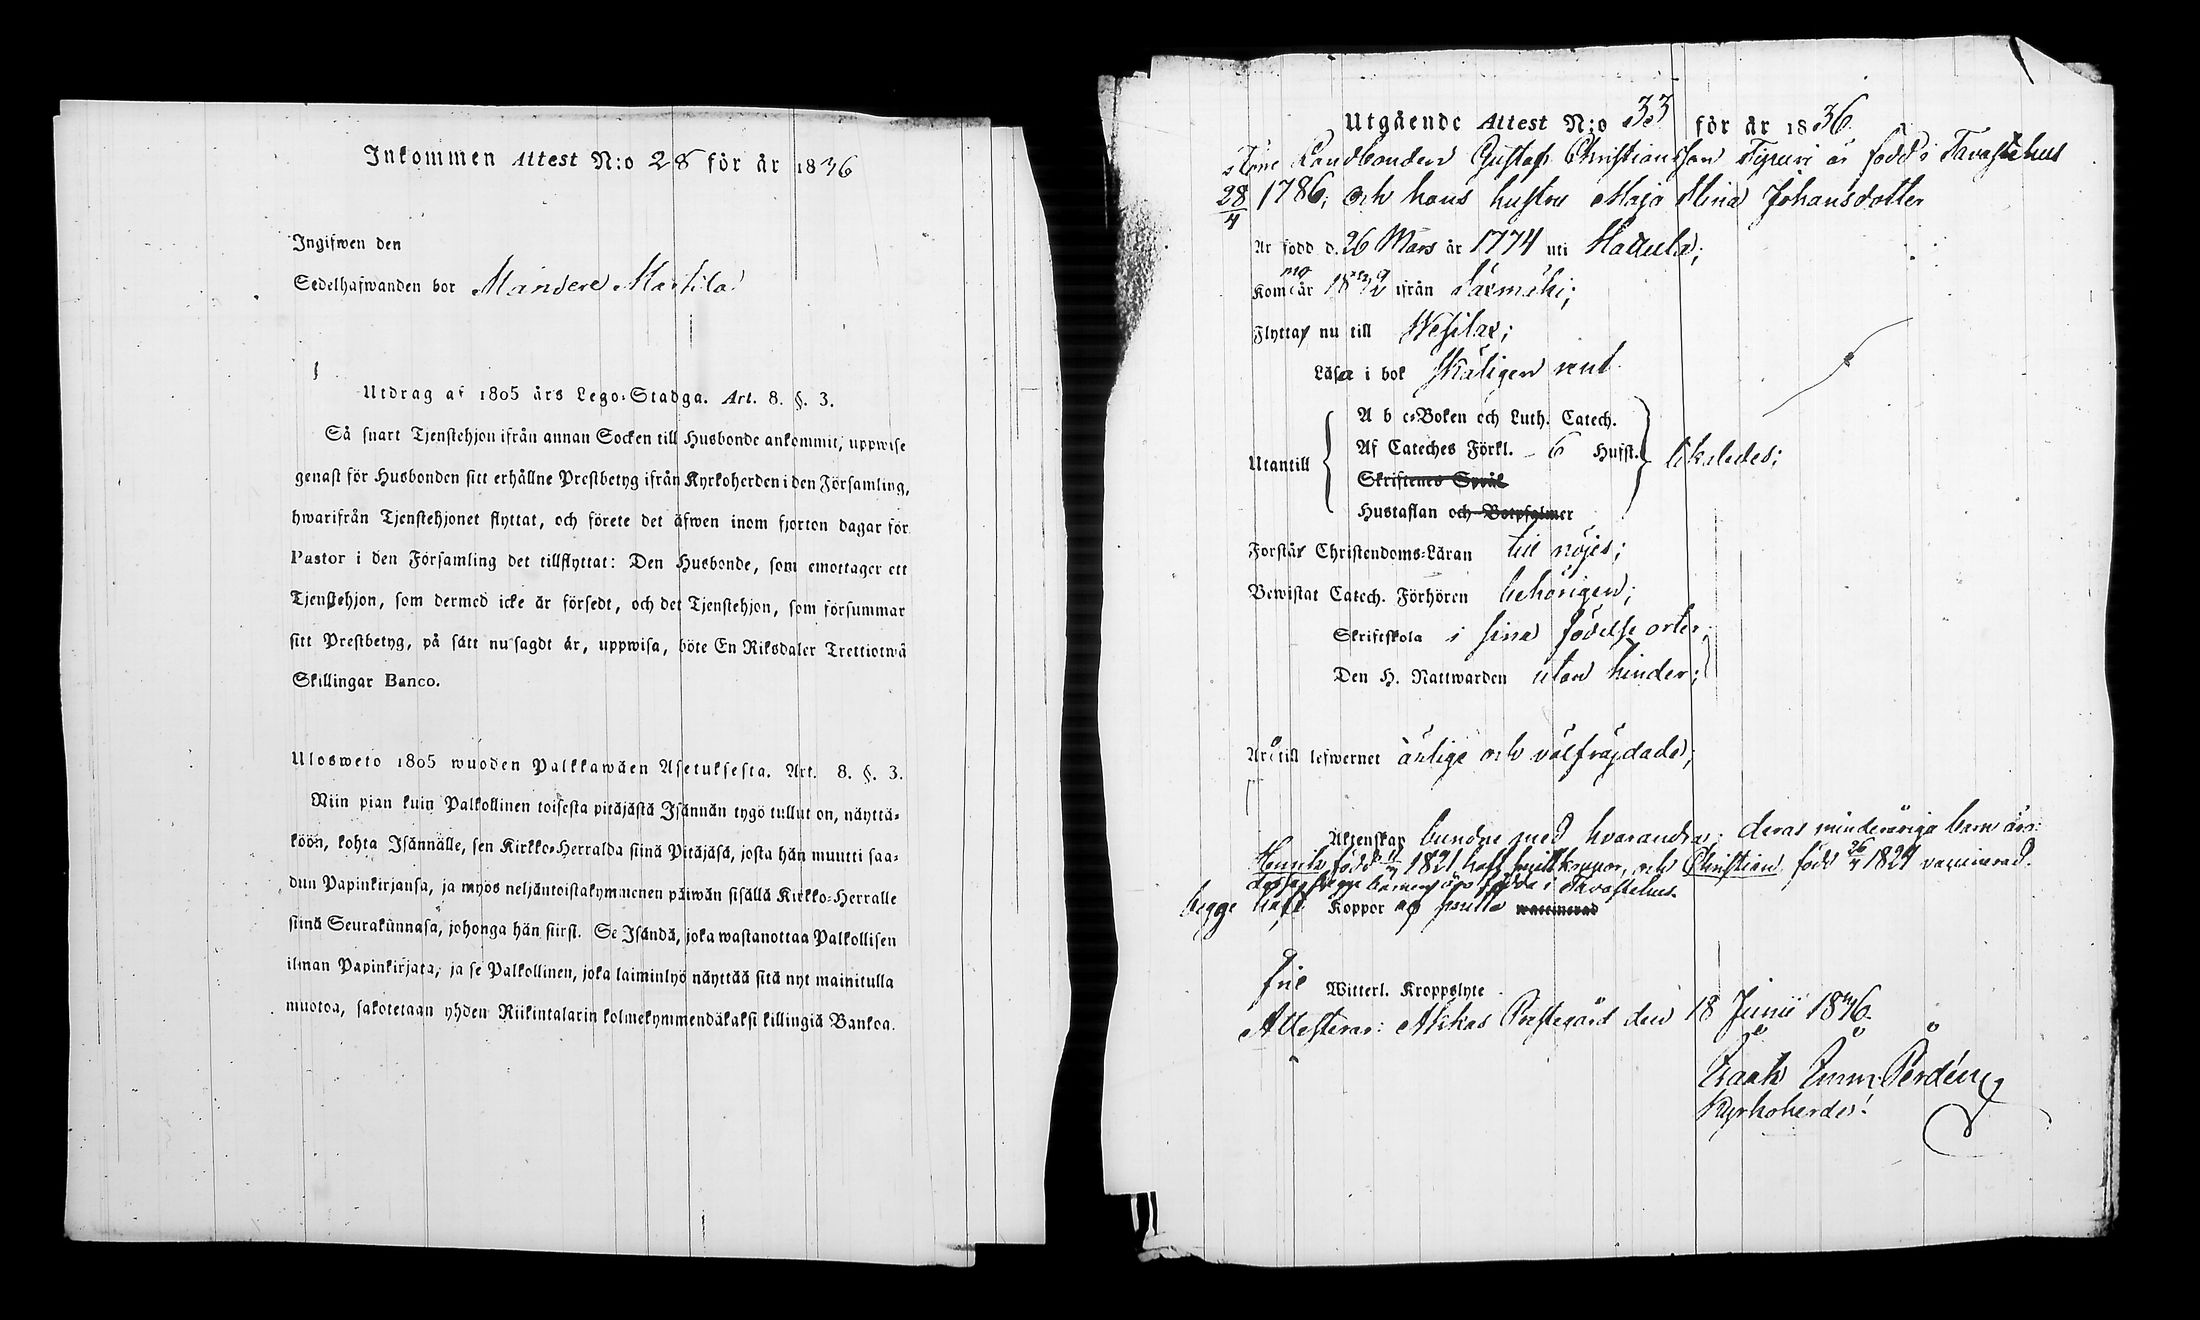 Inkommen Attest N:o 28 för år 1836
Ingifwen den
Sedelhafwanden bor Mandere Marttila
Utdrag af 1805 års Lego-Stadga. Art. 8. §. 3.
Så snart Tjenstehjon ifrån annan Socken till Husbonde ankommit, uppwise
genast för Husbonden sitt erhållne Prestbetyg ifrån Kyrkoherden i den Församling,
hwarifrån Tjenstehjonet flyttat, och förete det äfwen inom fjorton dagar för
Pastor i den Församling det tillflyttat: Den Husbonde, som emottager ett
Tjenstehjon, som dermed icke är försedt, och det Tjenstehjon, som försummar
sitt Prestbetyg, på sätt nu sagdt är, uppwisa, böte En Riksdaler Trettiotwå
Skillingar Banco.
Ulosweto 1805 wuoden Palkkawäen Asetuksesta. Art. 8. §. 3.
Niin pian kuin Palkollinen toisesta pitäjästä Isännän tygö tullut on, näyttä-
köön, kohta Isännälle, sen Kirkko-Herralda siinä Pitäjäsä, josta hän muutti saa-
dun Papinkirjansa, ja myös neljäntoistakymmenen päiwän sisällä Kirkko-Herralle
siinä Seurakunnasa, johonga hän siirsi. Se Isändä, joka wastanottaa Palkollisen
ilman Papinkirjata, ja se Palkollinen, joka laiminlyö näyttää sitä nyt mainitulla
muotoa, sakotetaan yhden Riikintalarin kolmekymmendäkaksi killingiä Bankoa.
Utgående Attest N:o 33 för år 1836.
Landbonden Gustaf Christiansson Typuri är född i Tavastehus
28/4 1786, och hans hustru Maja Stina Johansdotter
Är född d. 26 Mars år 1774 uti Hattula;
Kom år ifrån Säxmäki;
Flytta nu till Wesilax;
Läsa i bok skäligen rent
Utantill
A b c-Boken och Luth. Catech.
Af Cateches Förkl. - 6 Hufst.
Skriftenes Språk
Hustaflan och Botpsalmer
likaledes;
Förstår Christendoms-Läran till nöjes;
Bewistat Catech. Förhören behörigen;
Skriftskola i sina födelse orter;
Den H. Nattwarden utan hinder;
Äro till lefwernet ärlige och välfräjdade;
Äktenskap bundne med hvarandra; deras minderåriga barn äro:
Henrik född 1821 haft koppor, och Christian född 26/4 1824 vaccinerad.
dessa begge barnen äro födde i Tavastehus.
begge haft Koppor wattinerad
frie Witterl. Kroppslyte
Attesterar: Akkas Prestegård den 18 Junii 1836.
Isaak Emm: Perdén
Kyrkoherde.